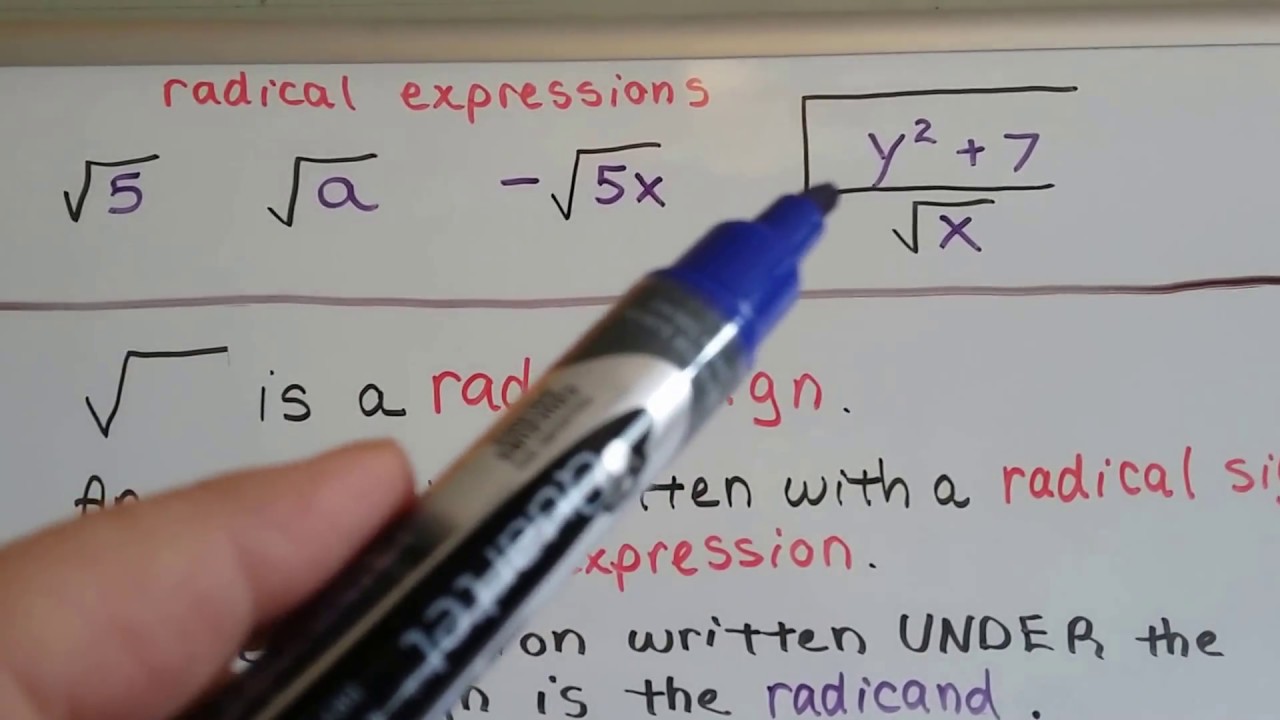 radical expressions
√5 √a -√5x √(y² + 7)/√x
√ is a gn.
tten with a radical
xpression.
on written UNDER the
is the radicand.